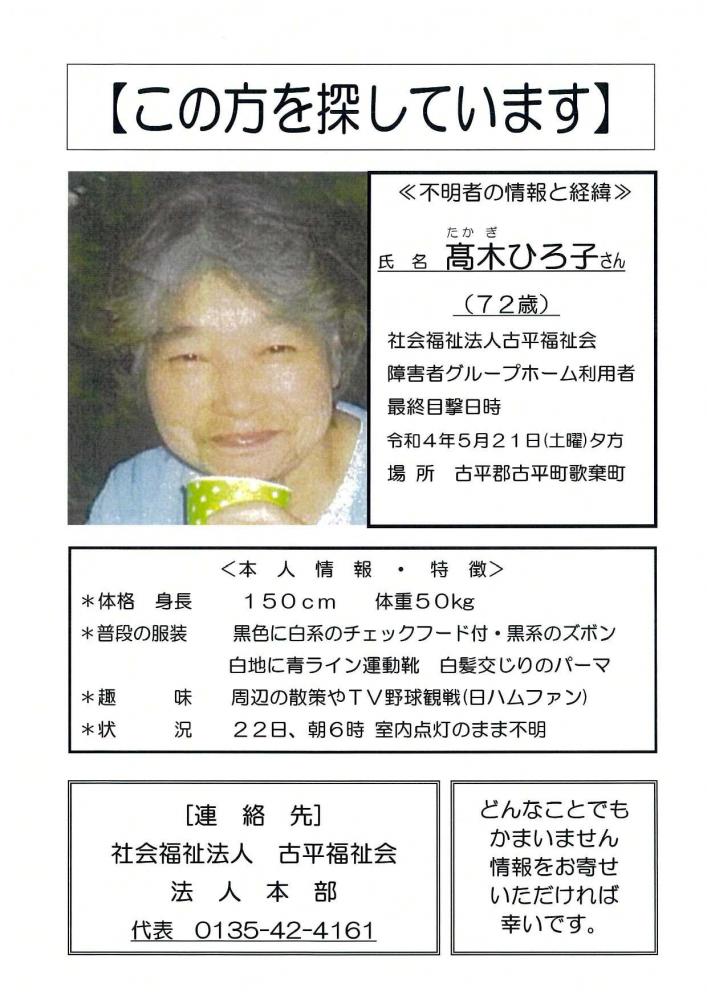 【この方を探しています】
≪不明者の情報と経緯≫
たか ぎ
氏 名 髙木ひろ子さん
（７２歳）
社会福祉法人古平福祉会
障害者グループホーム利用者
最終目撃日時
令和４年５月２１日(土曜)夕方
場 所 古平郡古平町歌棄町
＜本 人 情 報 ・ 特 徴＞
＊体格 身長 １５０ｃｍ 体重５０kg
＊普段の服装 黒色に白系のチェックフード付・黒系のズボン
白地に青ライン運動靴 白髪交じりのパーマ
＊趣 味 周辺の散策やＴＶ野球観戦(日ハムファン)
＊状 況 ２２日、朝６時 室内点灯のまま不明
[連 絡 先]
社会福祉法人 古平福祉会
法 人 本 部
代表 0135-42-4161
どんなことでも
かまいません
情報をお寄せ
いただければ
幸いです。